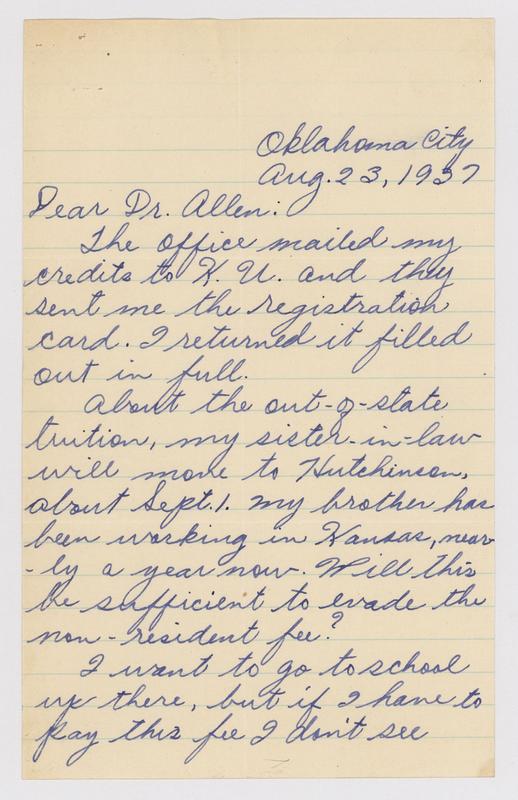 Oklahoma City
Aug. 23, 1937
Dear Dr. Allen:
The office mailed my
credits to K. U. and they
sent me the registration
card. I returned it filled
out in full.
About the out-of-state
tuition, my sister-in-law
will move to Hutchinson,
about Sept. 1. My brother has
been working in Kansas, near-
-ly a year now. Will this
be sufficient to evade the
non-resident fee?
I want to go to school
up there, but if I have to
pay this fee I don't see